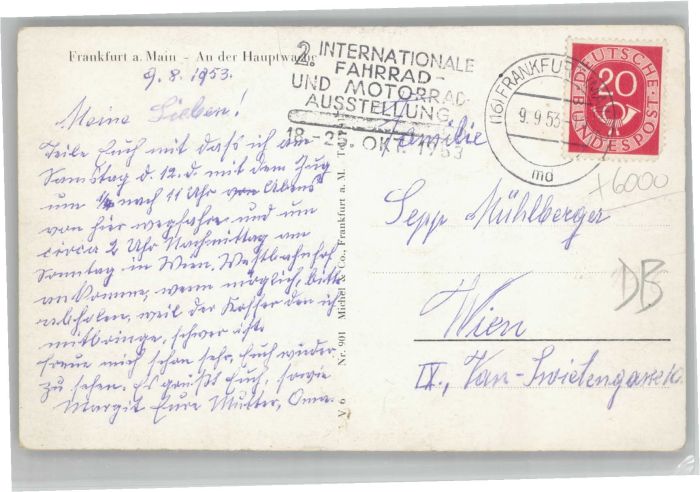 Frankfurt a. Main - An der Hauptwache
9.8.1953.
Meine Lieben!
Teile Euch mit daß ich am
Samstag d. 12. d. mit dem Zug
um nach 11 Uhr Abens
von hier wegfahre und um
circa 2 Uhr Nachmittag am
Sonntag in Wien, Westbahnhof
ankomme, wenn möglich, bitte
abholen, weil der Koffer den ich
mitbringe, schwer ist.
freue mich schon sehr, Euch wieder
zu sehen. Es grüßt Euch, sowie
Margit Eure Mutter, Oma.
V 6 Nr. 901 Michel & Co., Frankfurt a. M.
2. INTERNATIONALE
FAHRRAD-
UND MOTORRAD-
AUSSTELLUNG
18.-25. OKT. 1953
(16) FRANKFURT
9.9.53
md
DEUTSCHE
20
BUNDESPOST
Familie
Sepp Mühlberger
Wien
IX., Van-Swietengasse
+6000
DB